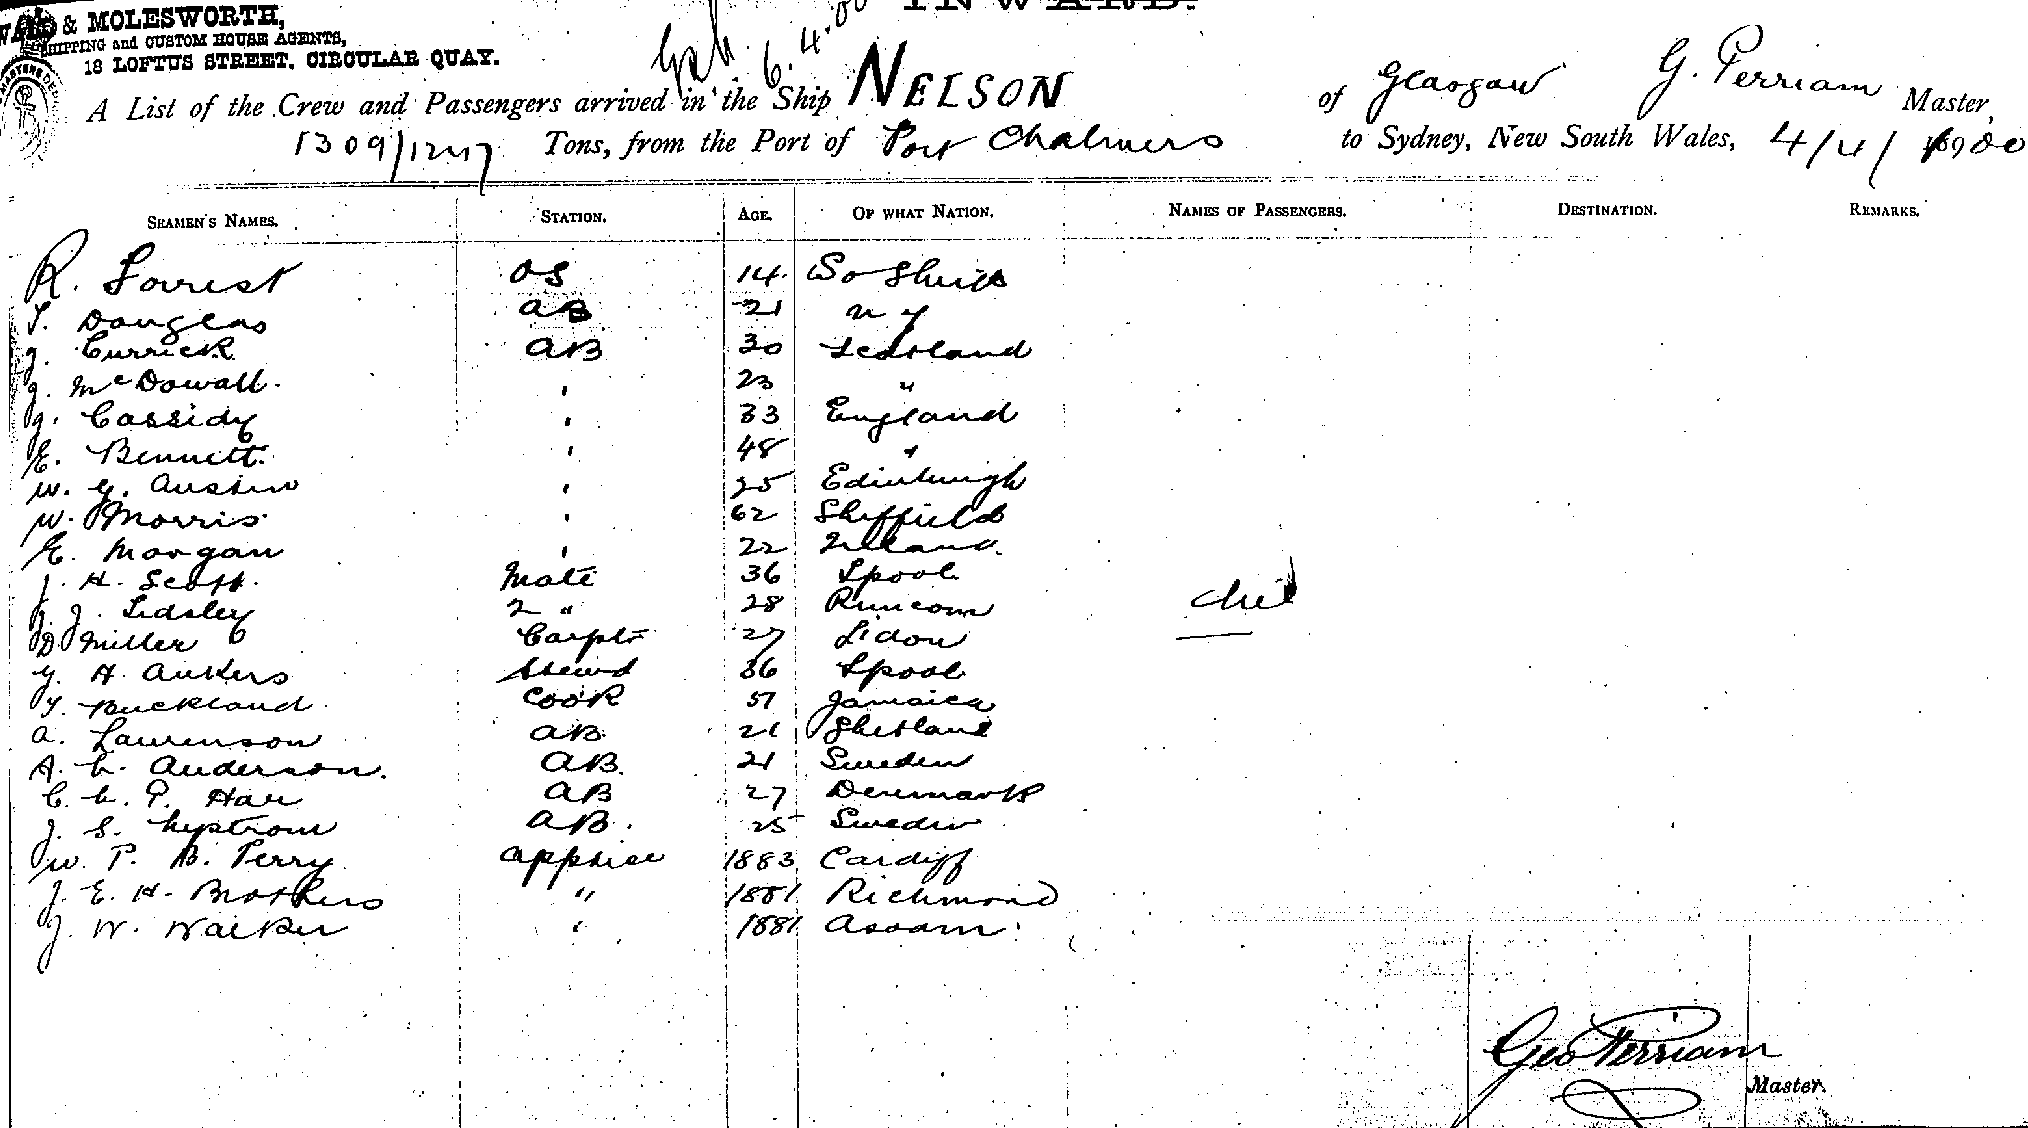 INWARD.
& MOLESWORTH,
SHIPPING and CUSTOM HOUSE AGENTS,
18 LOFTUS STREET, CIRCULAR QUAY.
6.4.00
A List of the Crew and Passengers arrived in the Ship NELSON of Glasgow G. Perriam Master,
1309/1247 Tons, from the Port of Port Chalmers to Sydney, New South Wales, 4/4/1900
SEAMEN'S NAMES. STATION. AGE. OF WHAT NATION. NAMES OF PASSENGERS. DESTINATION. REMARKS.
R. Forrest OS 14 So Shields
T. Douglas AB 21 N Y
J. Currick AB 30 Scotland
J. McDowall " 23 "
J. Cassidy " 33 England
E. Bennett " 48 "
W. G. Austin " 25 Edinburgh
W. Morris " 62 Sheffield
E. Morgan " 22 Ireland
J. H. Scott Mate 36 Lpool
J. J. Lidsley 2 " 28 Runcorn
D Miller Carptr 27
G. H. Ankers Stewd 36 Lpool
Buckland Cook 51 Jamaica
A. Laurenson AB 21 Shetland
A. L. Anderson AB 21 Sweden
C. L. P. Har AB 27 Denmark
J. S. Nystrom AB 25 Sweden
W. P. B. Perry apptice 1883 Cardiff
J. E. H. Brothers " 1881 Richmond
J. W. Walker " 1881 Assam
Geo Perriam
Master.